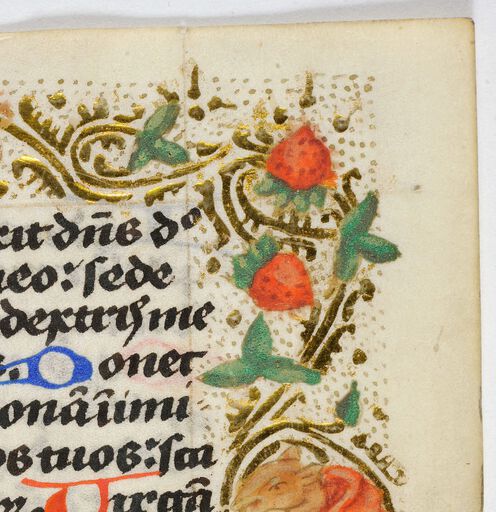 rit dn̄s dᵒ
meo : sede
dextrıs me
s. Donec
onā īnimi
os tuos : sca
Uirgā